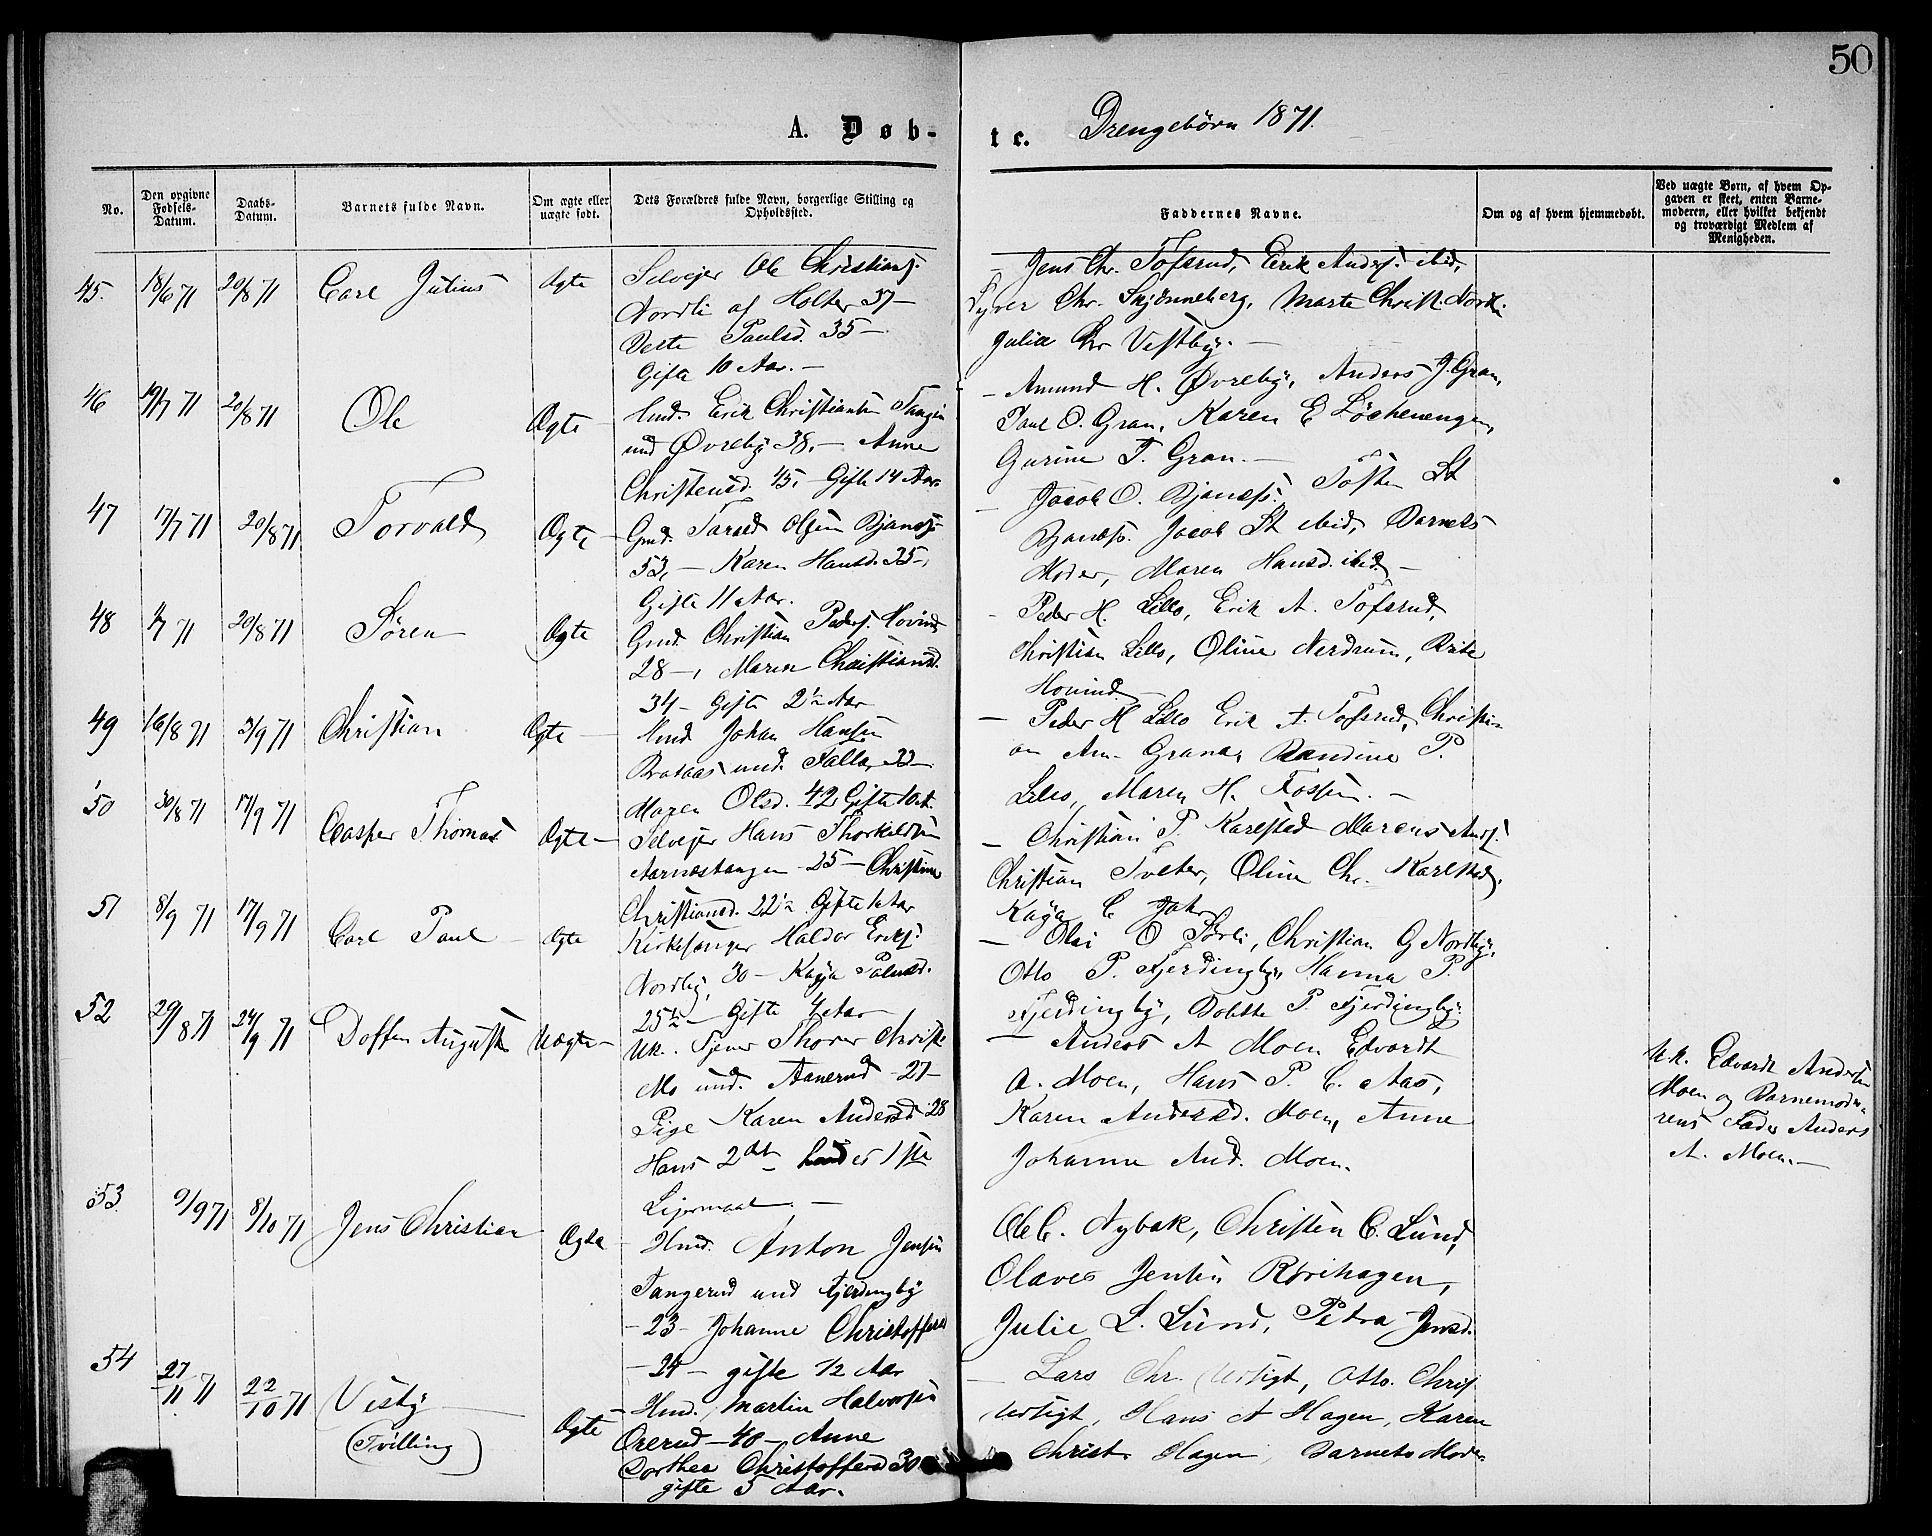 50
A. Døb-
te.
Drengebörn 1871.
No.
Den opgivne Fødsels-Datum.
Daabs-Datum.
Barnets fulde Navn.
Om ægte eller uægte født.
Dets Forældres fulde Navn, borgerlige Stilling og Opholdssted.
Faddernes Navne.
Om og af hvem hjemmedøbt.
Ved uægte Børn, af hvem Opgaven er skeet, enten Barnemoderen, eller hvilket bekjendt og troværdigt Medlem af Menigheden.
45. 18/6 71 20/8 71 Carl Julius Ægte
Selvejer Ole Christians.
Nordli af Holter 37 –
Paulsd. 35 –
Gifte 10 Aar. –
– Jens Chr. Tofsrud, Erik Anders. ibid,
Chr. Skjönneberg, Marte Christ. Nordli
Julia Chr Vestby. –
46 20/8 71 Ole Ægte
Hmd. Erik Christiansen Tangen
und Øvreby 38, – Anne
Christensd. 45, – Gifte 14 Aar
– Amund H. Øvreby, Anders J. Gran,
Paul O. Gran, Karen E Löchenengen,
Gurine T. Gran. –
47 17/7 71 20/8 71 Torvald Ægte –
Gmd. Olsen
53, – Karen Hansd. 35 –,
Gifte 11 Aar.
– Jacob O. St
Jacob St ibid, Barnets
Moder, Maren Hansd. ibid. –
48 71 20/8 71 Sören Ægte
Gmd. Christian Peders. Hovind
28 –, Maren Christiansd.
34 – Gifte 2½ Aar
– Peder H. Lillo, Erik A. Tofsrud,
Christian Lillo, Oline Nerdrum,
Hovind –
49 16/8 71 3/9 71 Christian Ægte –
Hmd Johan Hansen
und. Falla, 33 –
Maren Olsd. 42 Gifte
– Peder H Lillo Erik A. Tofsrud, Christi-
an Am. Grana, Randine P.
Lillo, Maren H. Fossen. –
50 30/8 71 17/9 71 Casper Thomas Ægte –
Selvejer Hans Thorkeldsen
Aarnæstangen – 25 – Christine
Christiansd. 22½ Gifte 1 Aar
– Christian P. Karlstad Marens Ands.
Christian Tveter, Oline Chr. Karlstad,
Kaja C
51 8/9 71 17/9 71 Carl Paul – Ægte
Kirkesanger Haldor Eriks.
Nordby, 30 – Kaja Paulsd.
25½ – Gifte 4 Aar
– O Christian G Nordby,
Otto P. Fjerdingby, Hanna P.
Fjerdingby, P. Fjerdingby
52 29/8 71 24/9 71 Doffen August Uægte –
Uk. Tjener Thorer Christ.
Mo und. Aanerud – 27 –
Pige Karen Andersd 28
Hans 2det – hendes 1ste
Leiermaal. –
– Anders A Moen Edvardt
A. Moen, Hans P. C. Aas,
Karen Andersd. Moen, Anne
Johanne And. Moen.
Uk. Edvardt Andersen
Moen og Barnemode-
rens Fader Anders
A. Moen. –
53. 9/9 71 8/10 71 Jens Christian Ægte –
Hmd. Anton Jensen
Tangerud und Fjerdingby
– 23 – Johanne Christoffersd
– 24 – gifte 1/2 Aar
Ole C. Nybak, Christen C. Lund,
Olaves Jensen Rörihagen,
Julie L. Lund, Petra Jensd.
54 27/11 71 22/10 71 Visty –
(Tvilling) Ægte
– Hmd. Martin Halvorsen
Ørerud – 40 –, Anne
Dorthea Christoffersd 30
gifte 5 Aar.
– Lars Chr. Urtigt, Otto Chris.
Urtigt, Hans A Hagen, Karen
Christ. Hagen, Barnets Moder